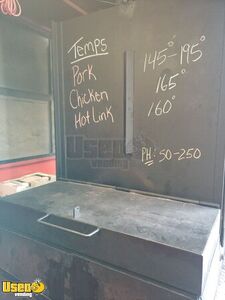 Temps
Pork 145°-195°
Chicken 165°
Hot Link 160°
PH: 50-250
Used
vending
Used
vending